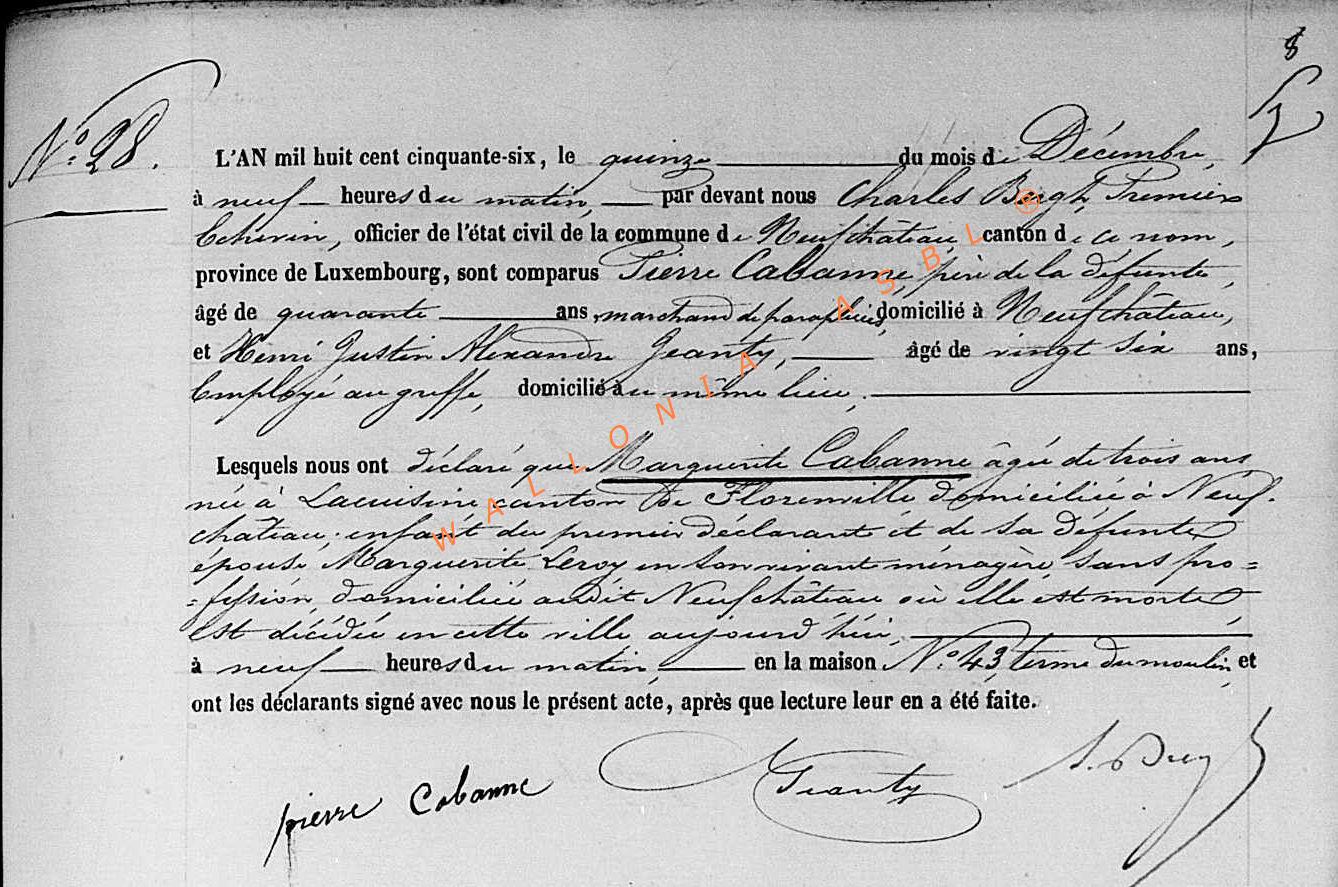 8
N.º 28.
L'AN mil huit cent cinquante-six, le quinze du mois de Décembre,
à neuf heures du matin, par devant nous Charles Bergh, Premier
Echevin, officier de l'état civil de la commune de Neufchâteau, canton de ce nom,
province de Luxembourg, sont comparus Pierre Cabanne, père de la défunte,
âgé de quarante ans, marchand de parapluies, domicilié à Neufchâteau,
et Henri Justin Alexandre Geanty, âgé de vingt six ans,
Employé au greffe, domicilié au même lieu,
Lesquels nous ont déclaré que Marguerite Cabanne âgée de trois ans
née à Lacuisine canton de Florenville, domiciliée à Neuf-
château, enfant du premier déclarant et de sa défunte
épouse Marguerite Leroy en son vivant ménagère, sans pro=
=fession, domiciliée audit Neufchâteau où elle est morte
est décédée en cette ville aujourd'hui,
à neuf heures du matin, en la maison N.º 43, terme du moulin, et
ont les déclarants signé avec nous le présent acte, après que lecture leur en a été faite.
pierre Cabanne
Geanty
WALLONIA ASBL ®